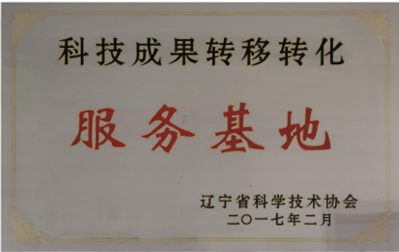 科技成果转移转化
服务基地
辽宁省科学技术协会
二〇一七年二月